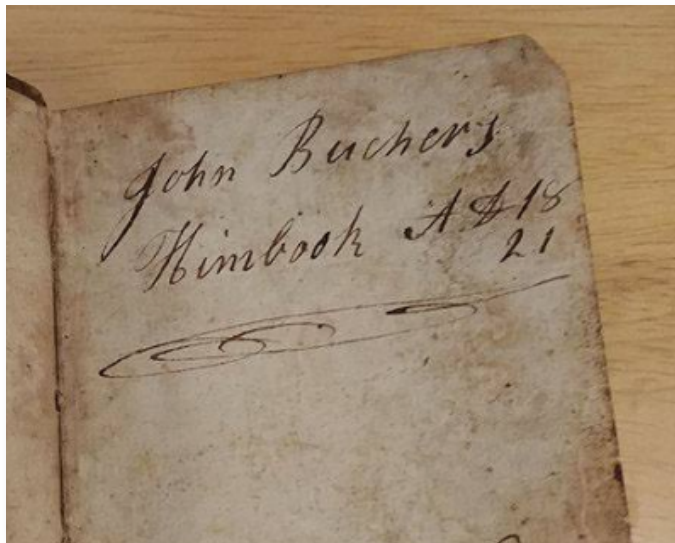 John Buchers
Himbook A D 18
21